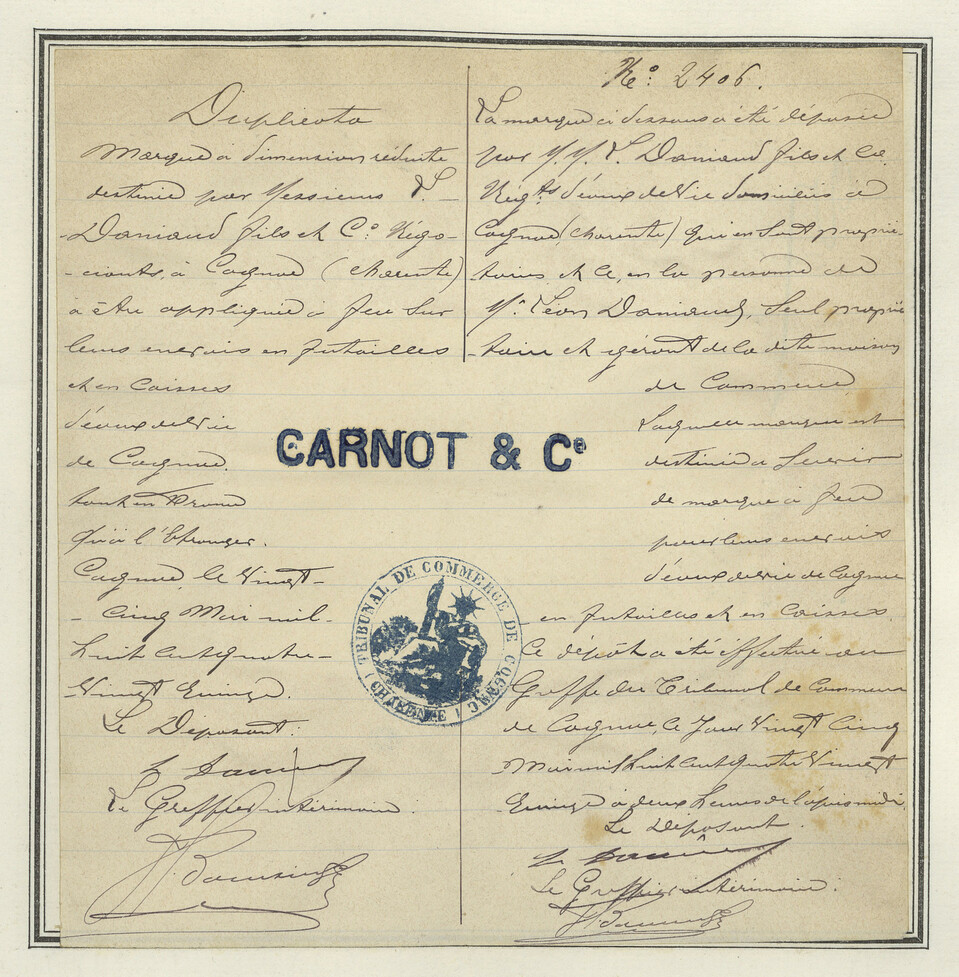 Duplicata
Marque à dimension réduite
destinée par Messieurs L.
Damiaud fils et Co. Négo-
-ciants, à Cognac (Charente)
à être appliquée à feu sur
leurs envois en futailles
et en caisses
d'eaux de Vie
de Cognac
tant en France
qu'à l'Etranger.
Cognac, le Vingt-
-cinq Mai mil-
huit cent quatre-
Vingt Quinze.
Le Déposant:
Le Greffier intérimaire:
No: 2406.
La marque ci dessous a été déposée
par M.M. L. Damiaud fils et Ce
Négts d'eaux de Vie domiciliés à
Cognac (Charente) qui en sont proprié-
-taires et ce, en la personne de
Mr Léon Damiaud, seul proprié-
-taire et gérant de la dite maison
de Commerce
Laquelle marque est
destinée à servir
de marque à feu
pour leurs envois
d'eaux de vie de Cognac
en futailles et en caisses
Ce dépôt a été effectué au
Greffe du Tribunal de Commerce
de Cognac, ce jour Vingt Cinq
Mai mil huit cent quatre Vingt
Quinze à deux heures de l'après midi.
Le Déposant.
Le Greffier intérimaire:
CARNOT & Ce
TRIBUNAL DE COMMERCE DE COGNAC
(CHARENTE)